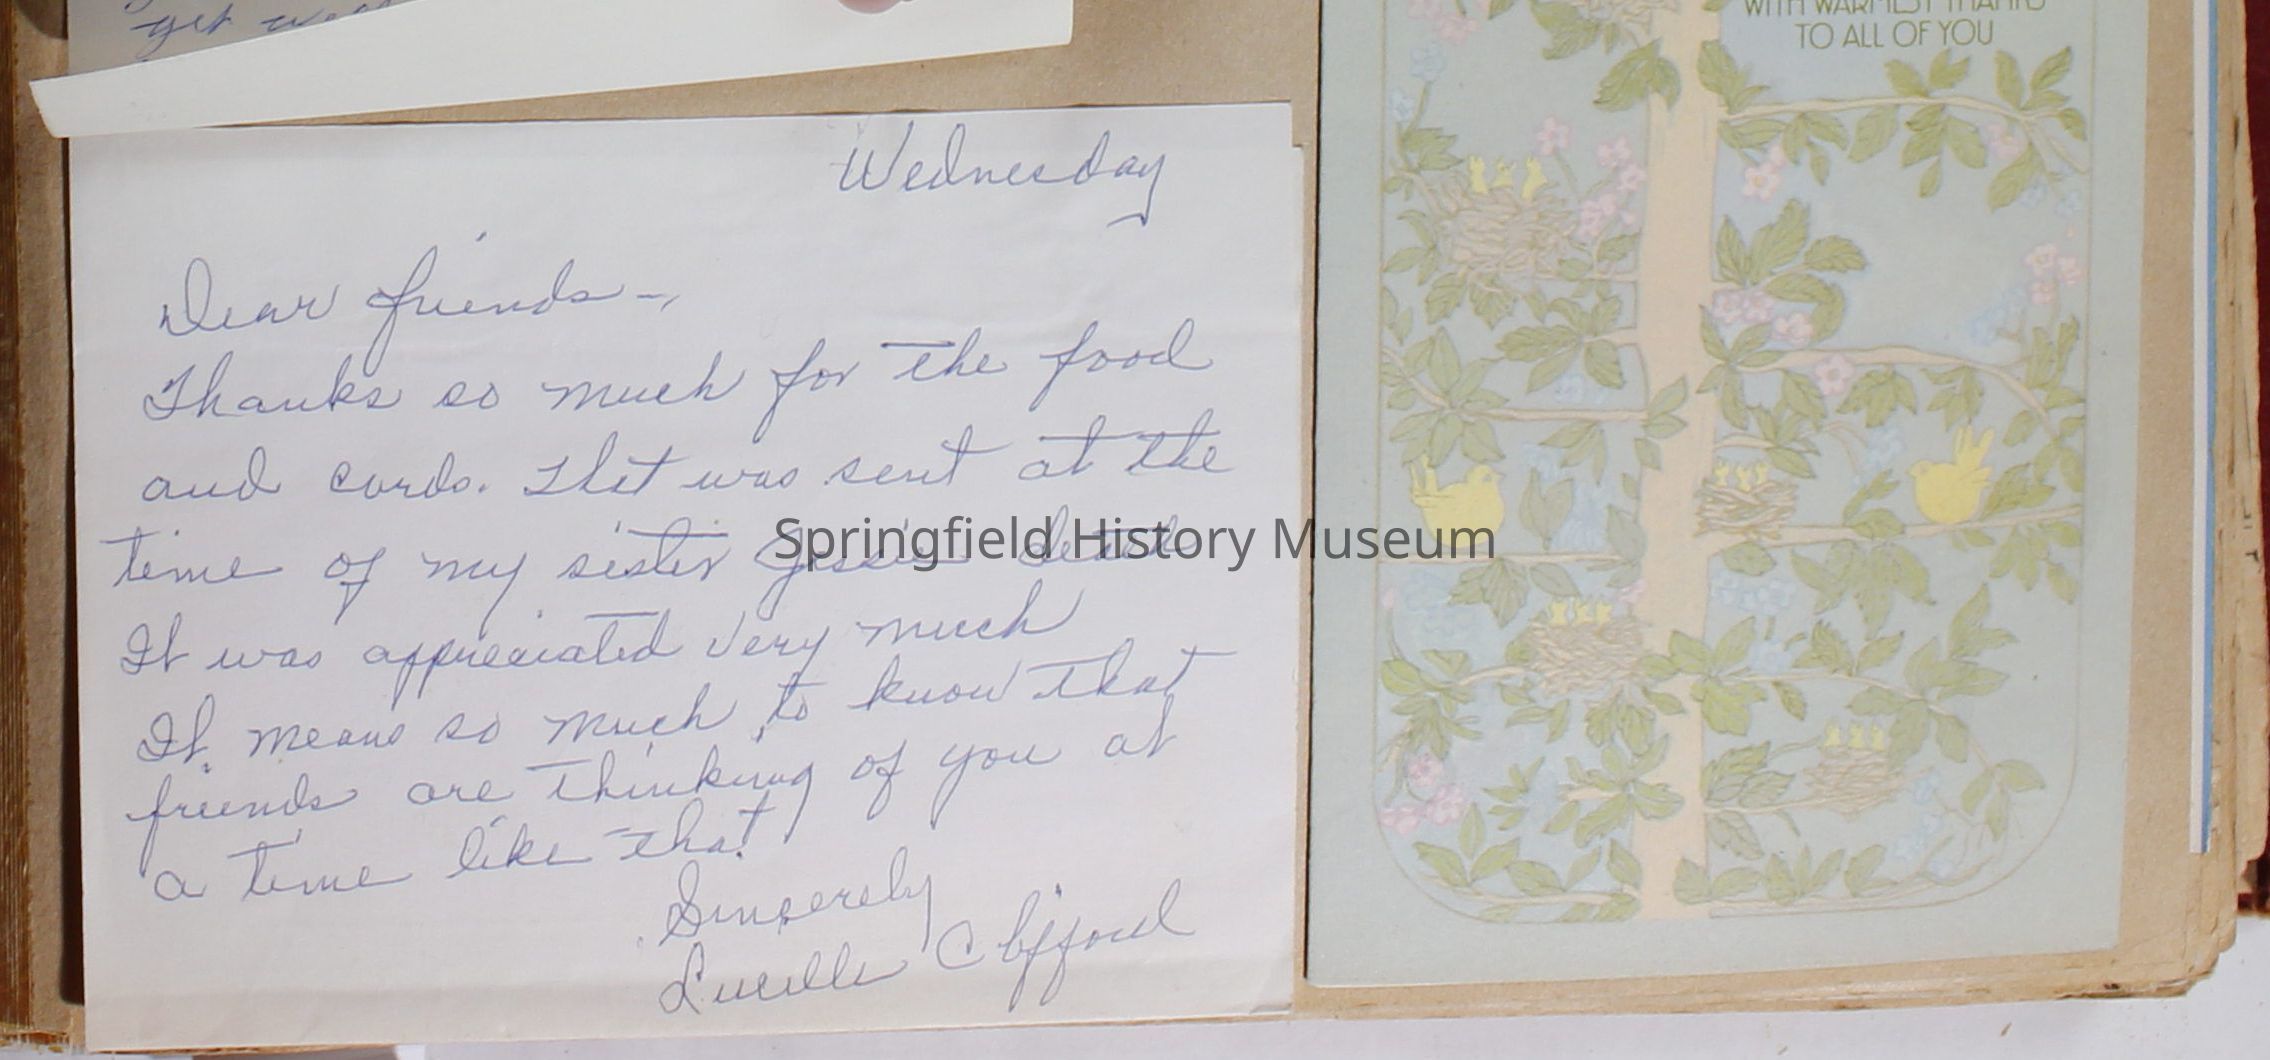 get well
Wednesday
Dear friends -,
Thanks so much for the food
and cards. That was sent at the
time of my sister Jessie death
It was appreciated very much
It means so much to know that
friends are thinking of you at
a time like that
Sincerely
Lucille Clifford
WITH WARMEST THANKS
TO ALL OF YOU
Springfield History Museum